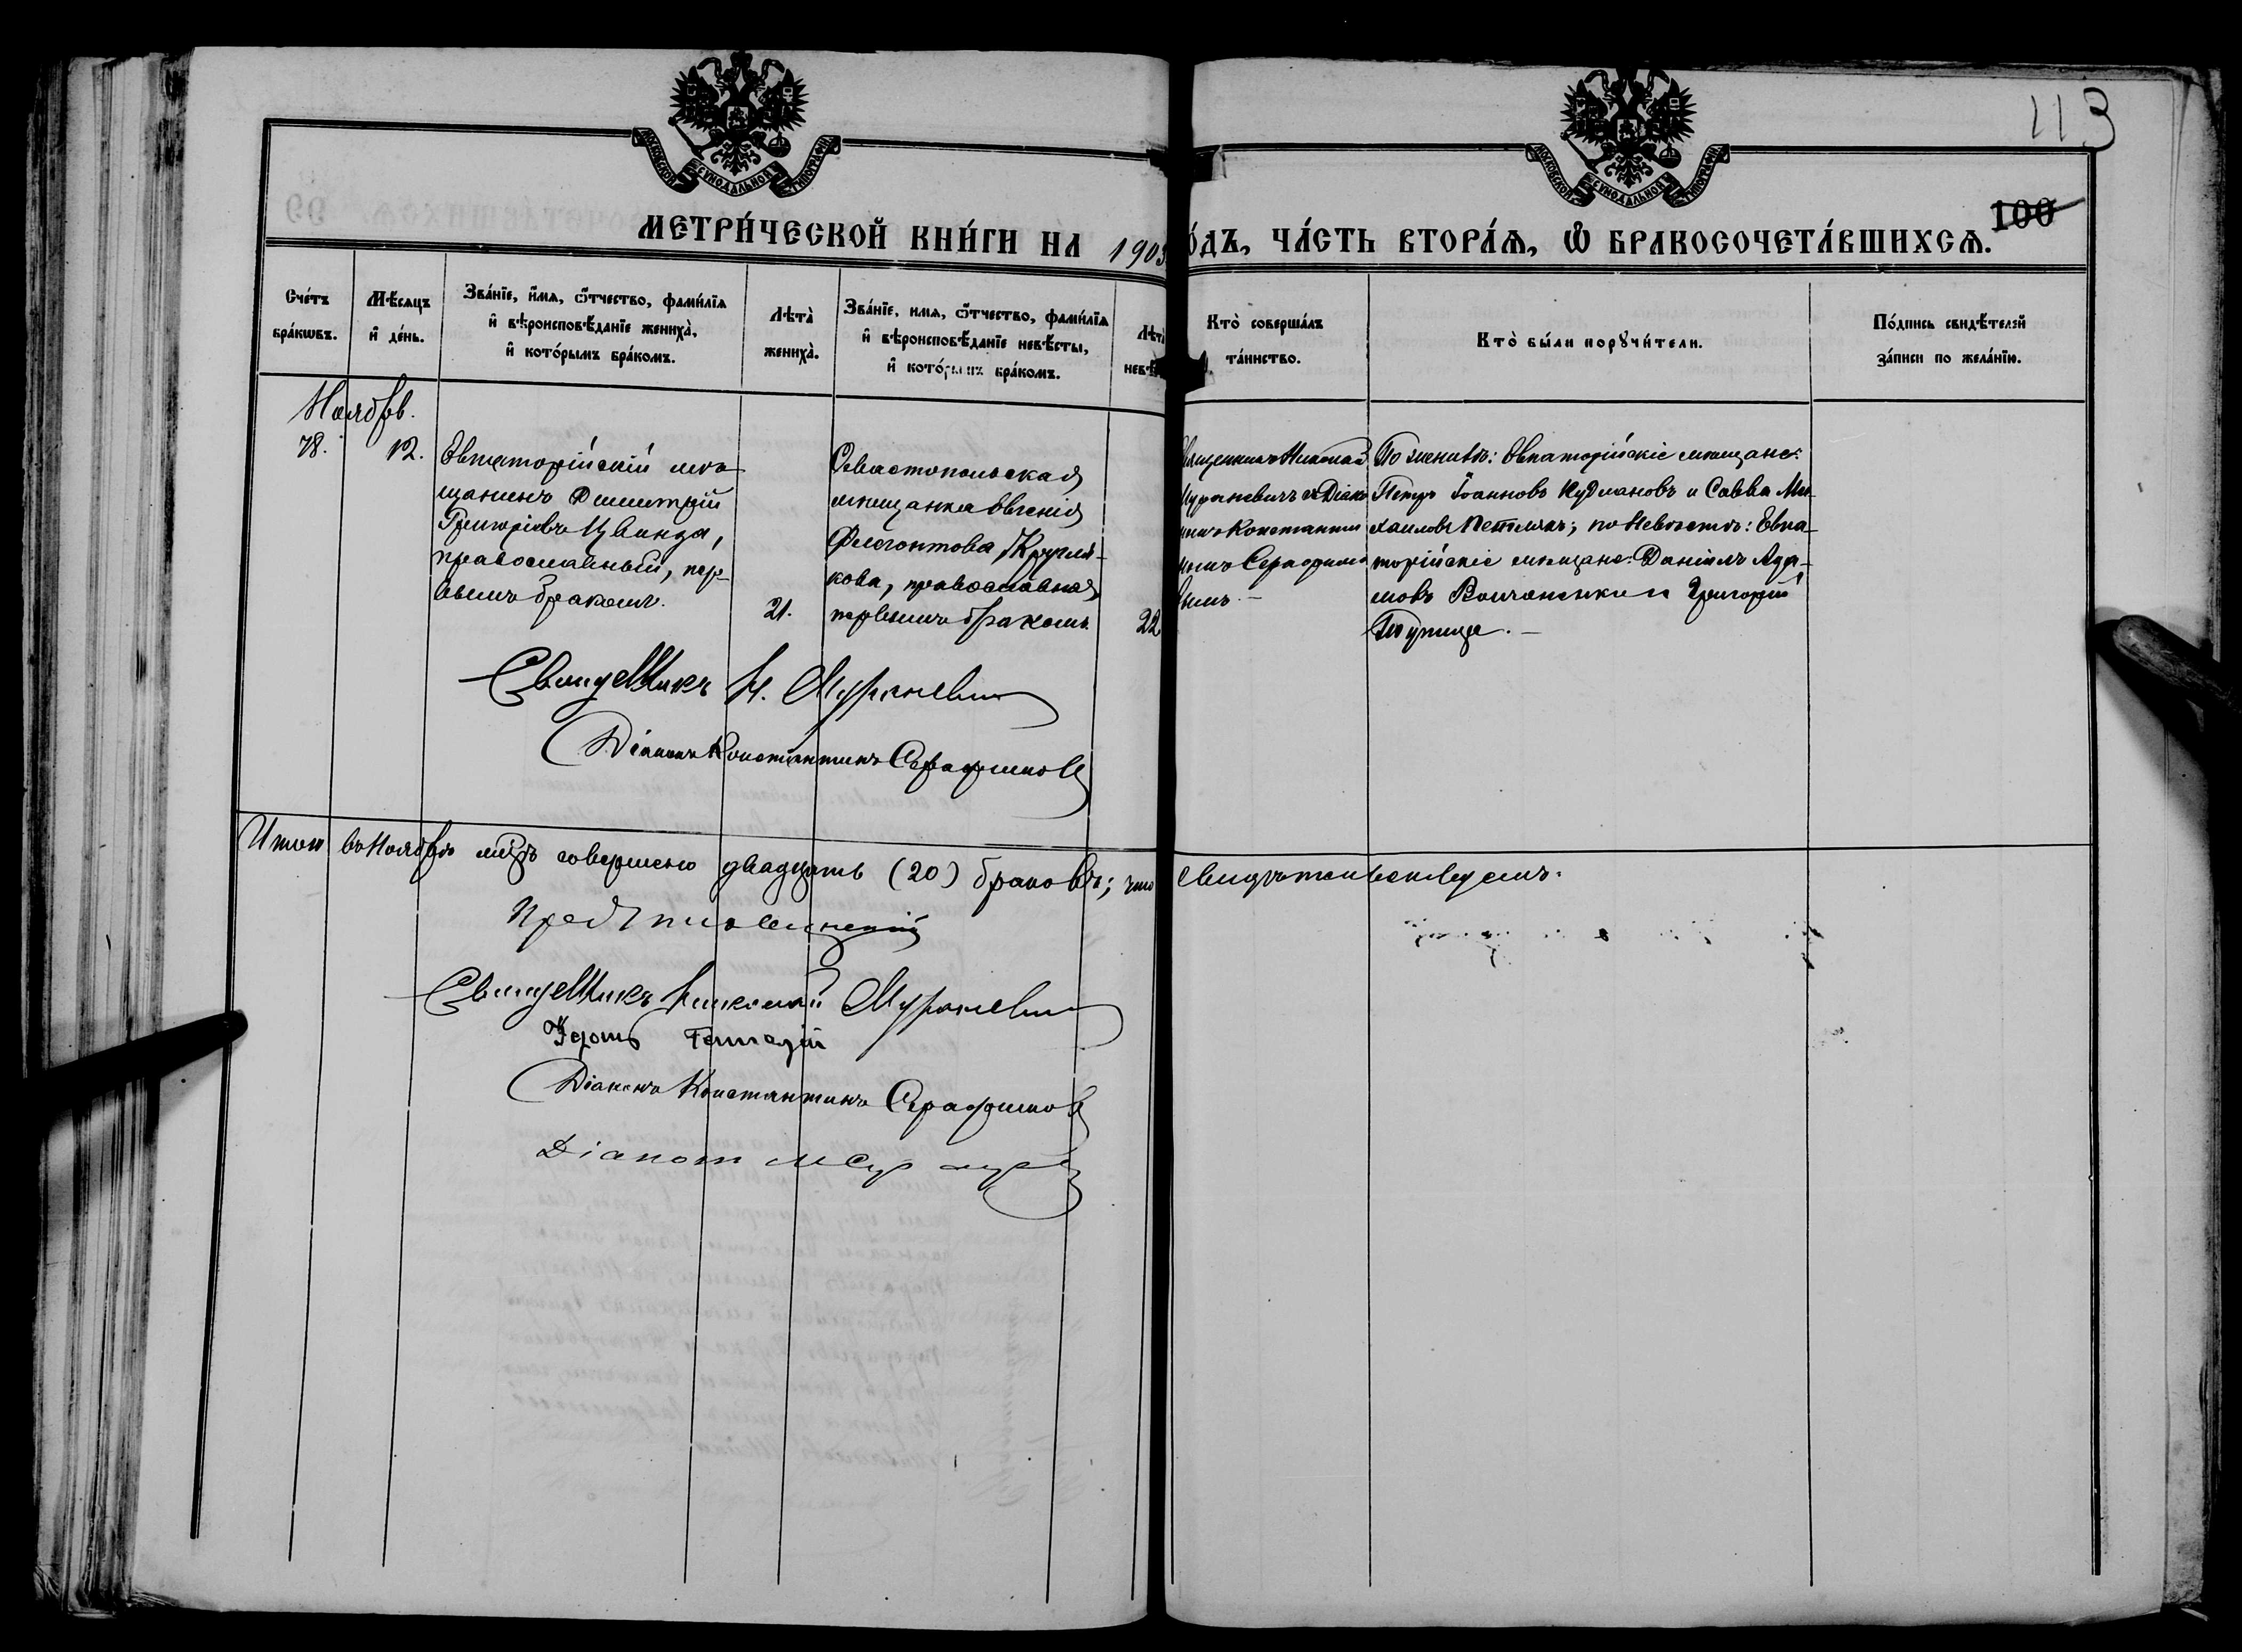 МОСКОВСКОЙ СѴНОДАЛЬНОЙ ТИПОГРАФІИ
МОСКОВСКОЙ СѴНОДАЛЬНОЙ ТИПОГРАФІИ
113
100
МЕТРИ́ЧЕСКОЙ КНИ́ГИ НА 1903
О́ДЪ, ЧА́СТЬ ВТОРА́Я, Ѿ БРАКОСОЧЕТА́ВШИХСЯ.
Сче́тъ
бра́кѡвъ.
Мѣ́сяцъ
и҆ де́нь.
Зва́нїе, и҆́мя, ѻ҆́тчество, фами́лїя
и҆ вѣроисповѣ́данїе жениха̀,
и҆ кото́рымъ бра́комъ.
Лѣта̀
жениха̀.
Зва́нїе, имя, ѻ҆́тчество, фами́лїя
и҆ вѣроисповѣ́данїе невѣ́сты,
и҆ кото́рымъ бра́комъ.
Лѣта̀
невѣ́
Кто̀ соверша́лъ
та́инство.
Кто̀ бы́ли порꙋчи́тели.
По́дпись свидѣ́телей
за́писи по жела́нїю.
Ноябрь.
78.
12.
Евпаторійскій мѣ-
щанинъ Димитрій
Григоріевъ Цвинда,
православный, пер-
вымъ бракомъ.
21.
Севастопольская
мѣщанка Евгенія
Флегонтова Кругли-
кова, православная
первымъ бракомъ.
22
Священникъ Николай
Мураневичъ съ Діако-
номъ Константи-
номъ Серафимо-
вымъ. —
По женихѣ: Евпаторійскіе мѣщане:
Петръ Іоанновъ Кудмановъ и Савва Ми-
хаиловъ Петлякъ; по невѣстѣ: Евпа-
торійскіе мѣщане: Даніилъ Ада-
мовъ и Григорій
Священникъ Н. Мураневичъ
Діаконъ Константинъ Серафимовъ
Итого въ Ноябрѣ мцѣ совершено двадцать (20) браковъ; что
свидѣтельствуемъ:
Священникъ Николай Мураневичъ
Діаконъ Константинъ Серафимовъ
Діаконъ